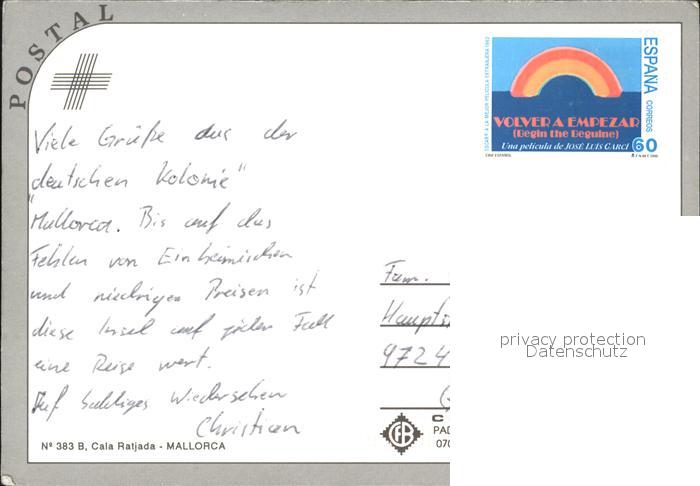 POSTAL
OSCAR A LA MEJOR PELICULA EXTRANJERA 1982
ESPAÑA
CORREOS
VOLVER A EMPEZAR
(Begin the Beguine)
Una película de JOSE LUIS GARCI
60
CINE ESPAÑOL
Viele Grüße aus der
deutschen Kolonie"
"Mallorca. Bis auf das
Fehlen von Einheimischen
und niedrigen Preisen ist
diese Insel auf jeden Fall
eine Reise wert.
Auf baldiges Wiedersehen
Christian
Fam.
Haupts
9724
privacy protection
Datenschutz
Nº 383 B, Cala Ratjada - MALLORCA
PAD
070